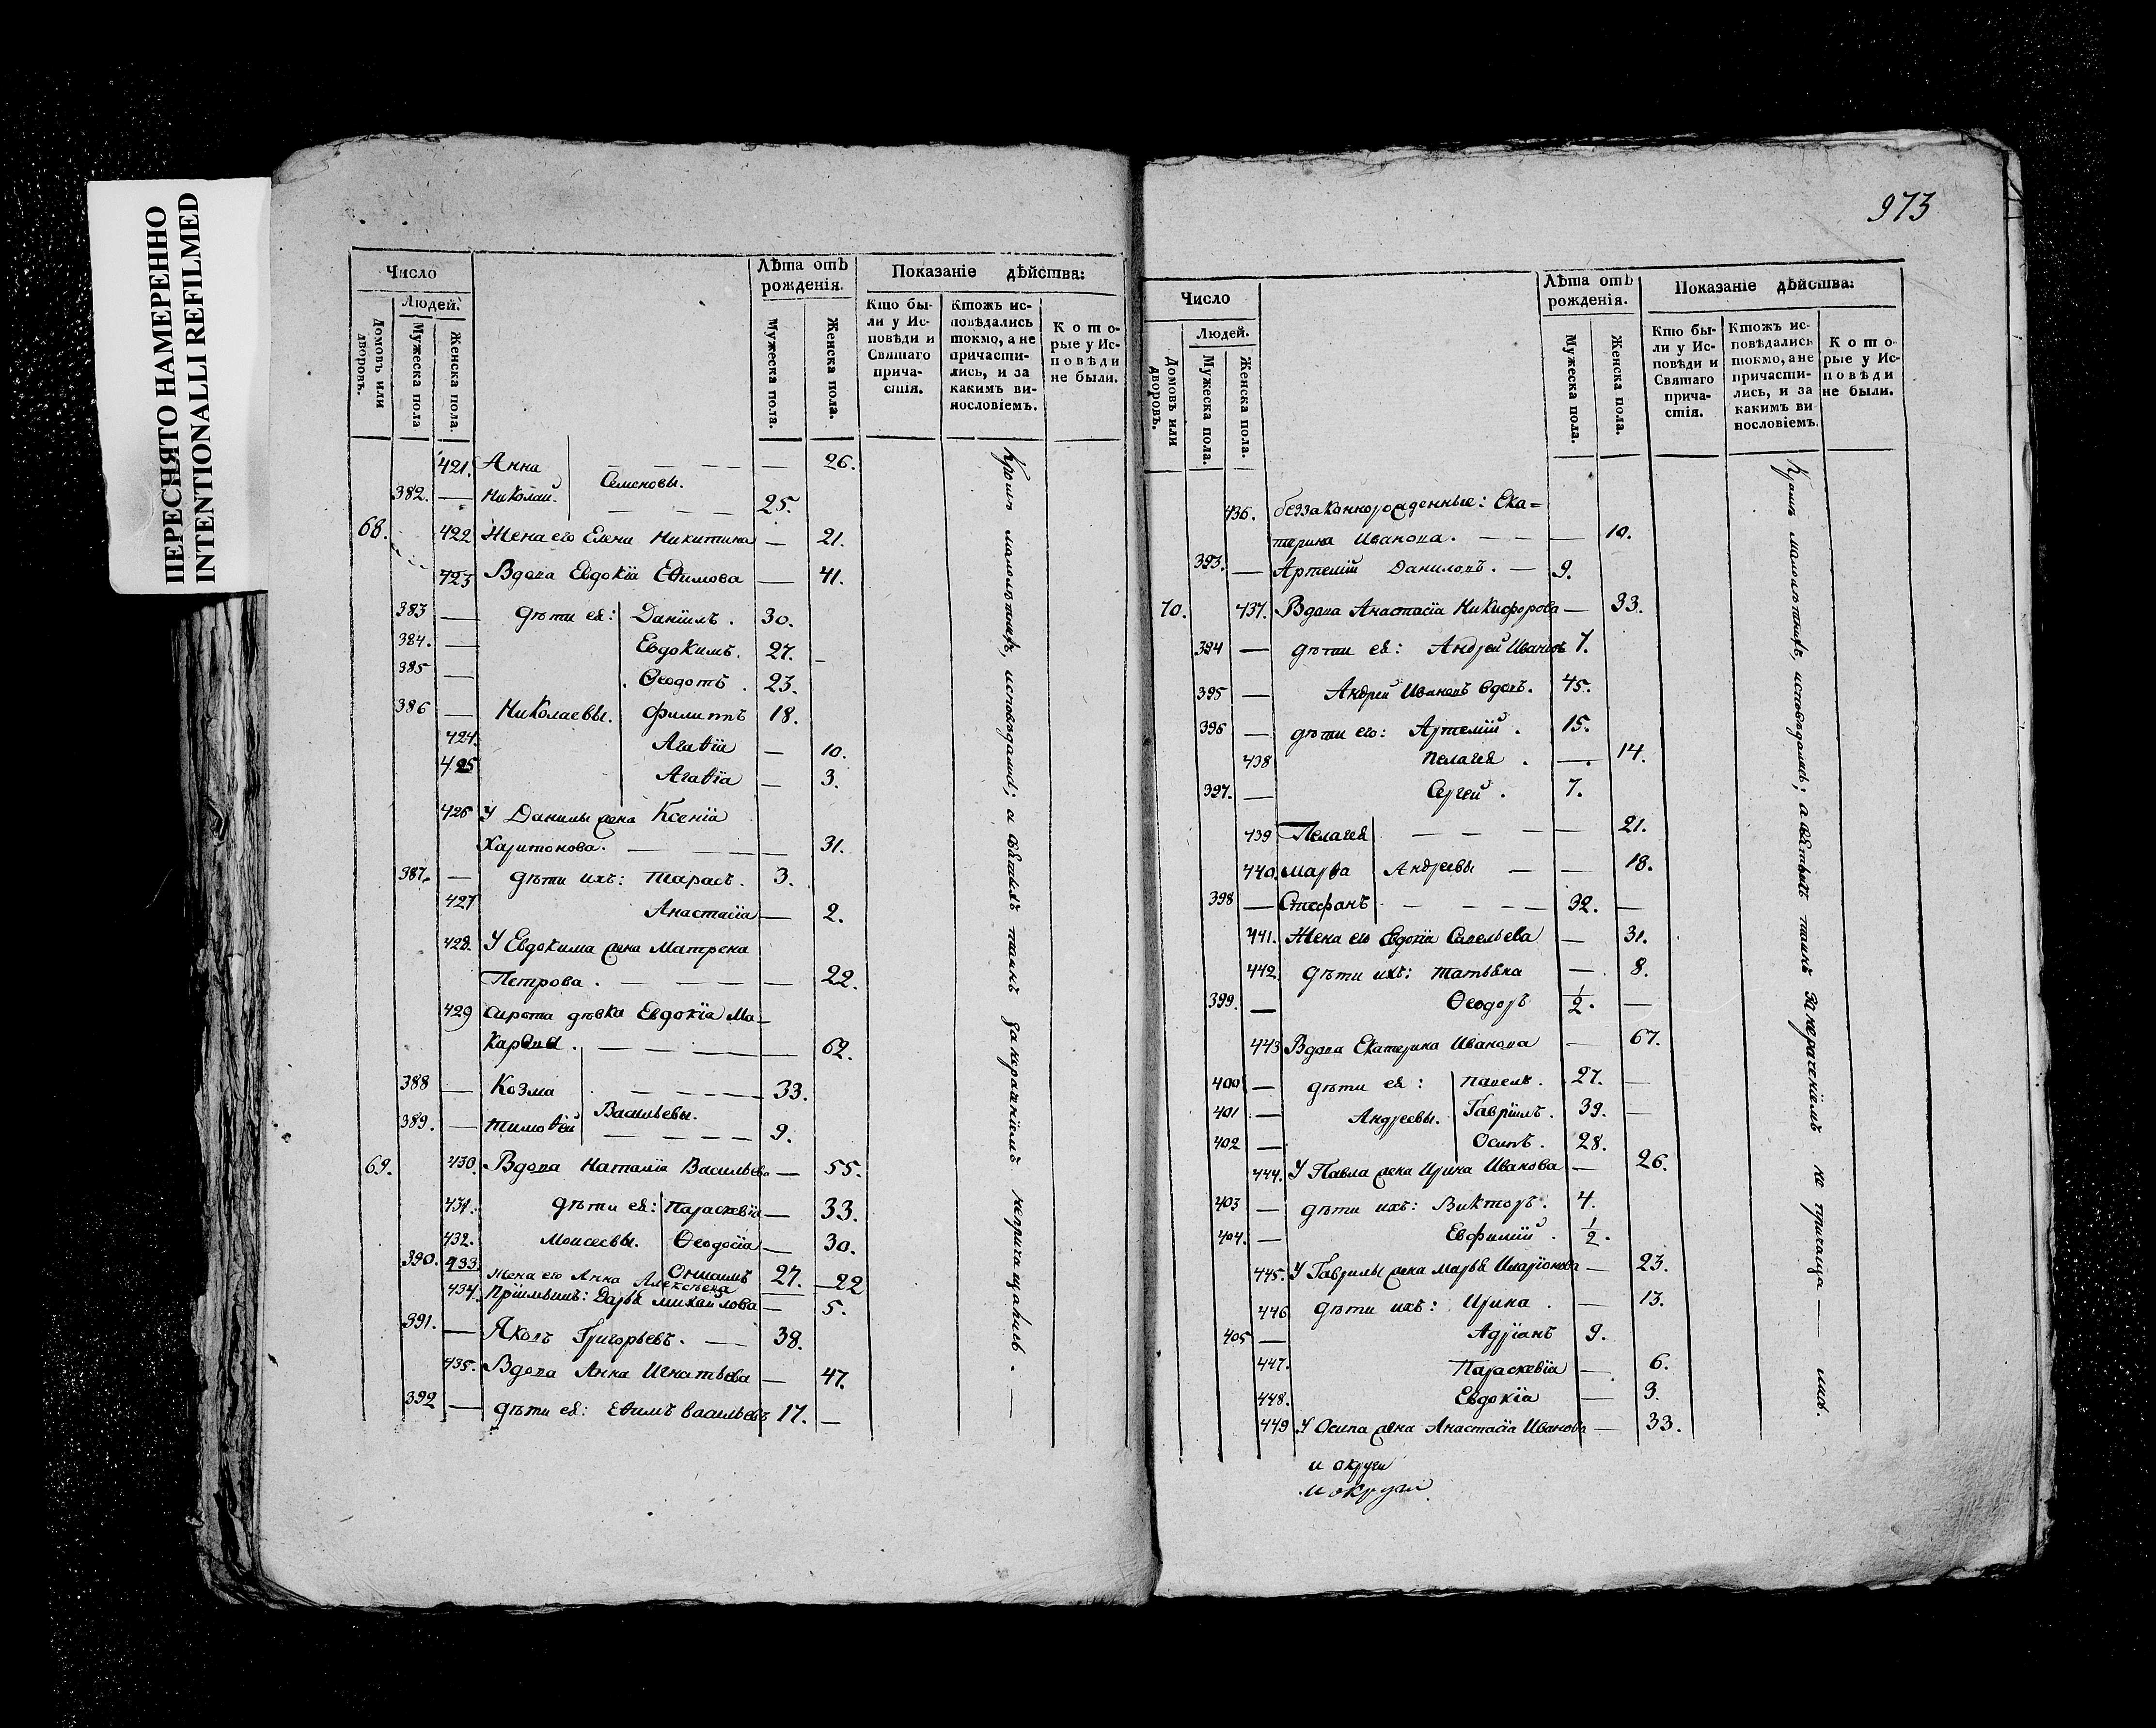 ПЕРЕСНЯТО НАМЕРЕННО
INTENTIONALLI REFILMED
Число
Людей.
Домовъ или дворовъ.
Мужеска пола
Женска пола.
Лѣта отъ рожденія.
Мужеска пола.
Женска пола.
Показаніе дѣйства:
Кто бы-
ли у Ис-
повѣди и
Святаго
прича-
стія.
Ктожъ ис-
повѣдались
токмо, а не
причасти-
лись, и за
какимъ ви-
нословіемъ.
Кото-
рые у Ис-
повѣди
не были.
421. Анна — — — — 26.
Семеновы.
382. — Николай. — — — 25.
68. 422 Жена его Елена Никитина — 21.
423 Вдова Евдокія Еѳимова — 41.
383 — дѣти ея: Даніилъ. 30.
384. — Евдокимъ. 27. -
385 — Ѳеодотъ. 23.
386 — Николаевы. Филиппъ 18.
424. Агаѳія — 10.
425 Агаѳія — 3.
426 У Данилы жена Ксенія
Харитонова. — — — 31.
387. — дѣти ихъ: Тарасъ. 3.
427 Анастасія — 2.
428. У Евдокима жена Матрена
Петрова. — — — — 22.
429 сирота дѣвка Евдокія Ма-
— — — — 62.
388 — Козма — — — 33.
Васильевы.
389. — Тимоѳей — — — — 9.
69. 430. Вдова Наталія Васильева — 55.
431. дѣти ея: Параскевія — 33.
432. Моисеевы. Ѳеодосія — 30.
390. 433. 27. — 22
жена его Анна Алексѣева
434. Дарья Михайлова — 5.
391. — Яковъ Григорьевъ. — 38.
435. Вдова Анна Игнатьева — 47.
392 — дѣти ея: Еѳимъ Васильевъ 17. —
Кромѣ малолѣтныхъ, исповѣдались; а святыхъ таинъ за нерачѣніемъ непричащались. —
973
Число
Людей.
Домовъ или дворовъ.
Мужеска пола.
Женска пола.
Лѣта отъ рожденія.
Мужеска пола.
Женска пола.
Показаніе дѣйства:
Кто бы-
ли у Ис-
повѣди и
Святаго
прича-
стія.
Ктожъ ис-
повѣдались
токмо, а не
причасти-
лись, и за
какимъ ви-
нословіемъ.
Кото-
рые у Ис-
повѣди
не были.
436. беззаконнорожденные: Ека=
терина Иванова. — — — 10.
393. — Артемій Даниловъ. — 9.
70. 437. Вдова Анастасія Никифорова — 33.
394 — дѣти ея: Андрей Ивановъ 7.
395 — Андрей Ивановъ вдовъ. 45.
396 — дѣти его: Артемій. 15.
438 Пелагея. —. 14.
397. — Сергей. 7.
439 Пелагея — — — — 21.
440. Марѳа Андреевы — — 18.
398 — Стефанъ — — — — 32. —
441. Жена его Евдокія Савельева — 31.
442. дѣти ихъ: Татьяна —. 8.
399. — Ѳеодоръ ½. —
443 Вдова Екатерина Иванова — 67.
400 — дѣти ея: Павелъ. 27. —
401 — Андреевы. Гавріилъ. 39. —
402 — Осипъ. 28.
444. У Павла жена Ирина Иванова — 26.
403 — дѣти ихъ: Викторъ. 4.
404. — Евфимій. ½.
445. У Гаврилы жена Марья Иларіонова — 23.
446 дѣти ихъ: Ирина. — 13.
405 — Адріанъ 9.
447. Параскевія — 6.
448. Евдокія — 3.
449 У Осипа жена Анастасія Иванова — 33.
Кромѣ малолѣтныхъ, исповѣдались; а святыхъ таинъ за нерачѣніемъ не причаща — лись.
и округи
и округи